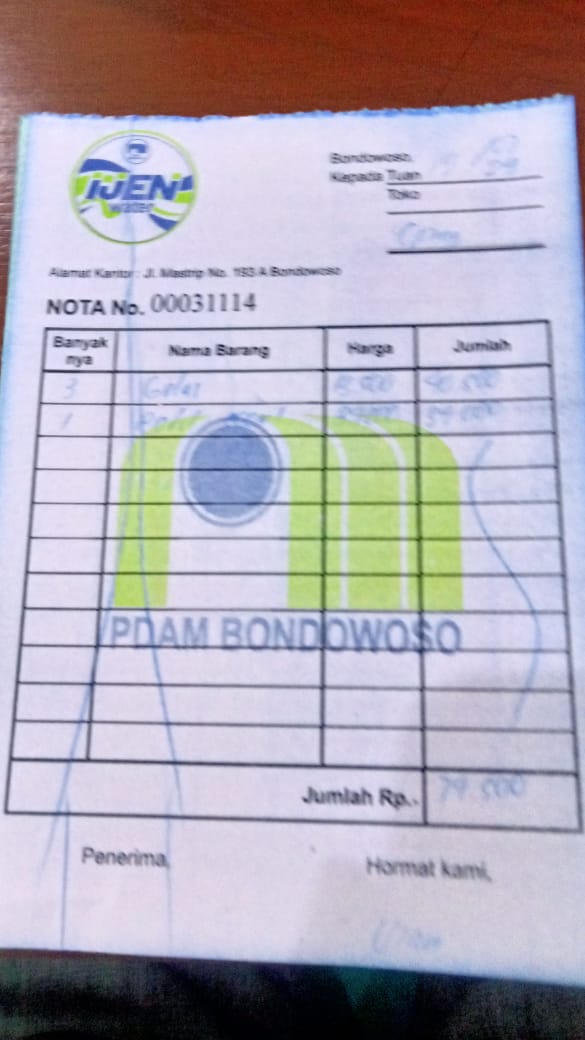 IJEN
water
Bondowoso, 
Kepada Tuan
Toko
Alamat Kantor : Jl. Mastrip No. 193 A Bondowoso
NOTA No. 00031114
Banyak nya Nama Barang Harga Jumlah
3 Gelas 40.500
1 39.000
PDAM BONDOWOSO
Jumlah Rp.- 79.500
Penerima, Hormat kami,